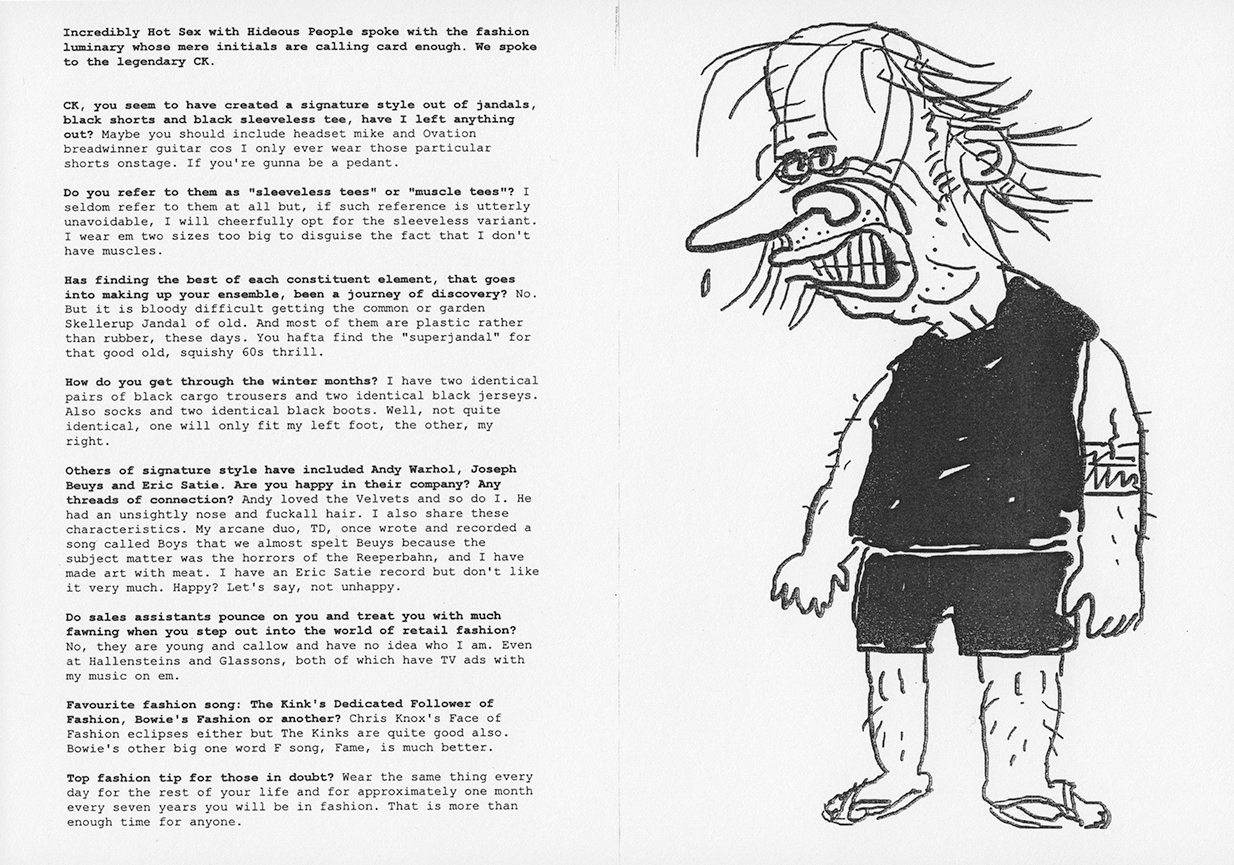 Incredibly Hot Sex with Hideous People spoke with the fashion
luminary whose mere initials are calling card enough. We spoke
to the legendary CK.
CK, you seem to have created a signature style out of jandals,
black shorts and black sleeveless tee, have I left anything
out? Maybe you should include headset mike and Ovation
breadwinner guitar cos I only ever wear those particular
shorts onstage. If you're gunna be a pedant.
Do you refer to them as "sleeveless tees" or "muscle tees"? I
seldom refer to them at all but, if such reference is utterly
unavoidable, I will cheerfully opt for the sleeveless variant.
I wear em two sizes too big to disguise the fact that I don't
have muscles.
Has finding the best of each constituent element, that goes
into making up your ensemble, been a journey of discovery? No.
But it is bloody difficult getting the common or garden
Skellerup Jandal of old. And most of them are plastic rather
than rubber, these days. You hafta find the "superjandal" for
that good old, squishy 60s thrill.
How do you get through the winter months? I have two identical
pairs of black cargo trousers and two identical black jerseys.
Also socks and two identical black boots. Well, not quite
identical, one will only fit my left foot, the other, my
right.
Others of signature style have included Andy Warhol, Joseph
Beuys and Eric Satie. Are you happy in their company? Any
threads of connection? Andy loved the Velvets and so do I. He
had an unsightly nose and fuckall hair. I also share these
characteristics. My arcane duo, TD, once wrote and recorded a
song called Boys that we almost spelt Beuys because the
subject matter was the horrors of the Reeperbahn, and I have
made art with meat. I have an Eric Satie record but don't like
it very much. Happy? Let's say, not unhappy.
Do sales assistants pounce on you and treat you with much
fawning when you step out into the world of retail fashion?
No, they are young and callow and have no idea who I am. Even
at Hallensteins and Glassons, both of which have TV ads with
my music on em.
Favourite fashion song: The Kink's Dedicated Follower of
Fashion, Bowie's Fashion or another? Chris Knox's Face of
Fashion eclipses either but The Kinks are quite good also.
Bowie's other big one word F song, Fame, is much better.
Top fashion tip for those in doubt? Wear the same thing every
day for the rest of your life and for approximately one month
every seven years you will be in fashion. That is more than
enough time for anyone.